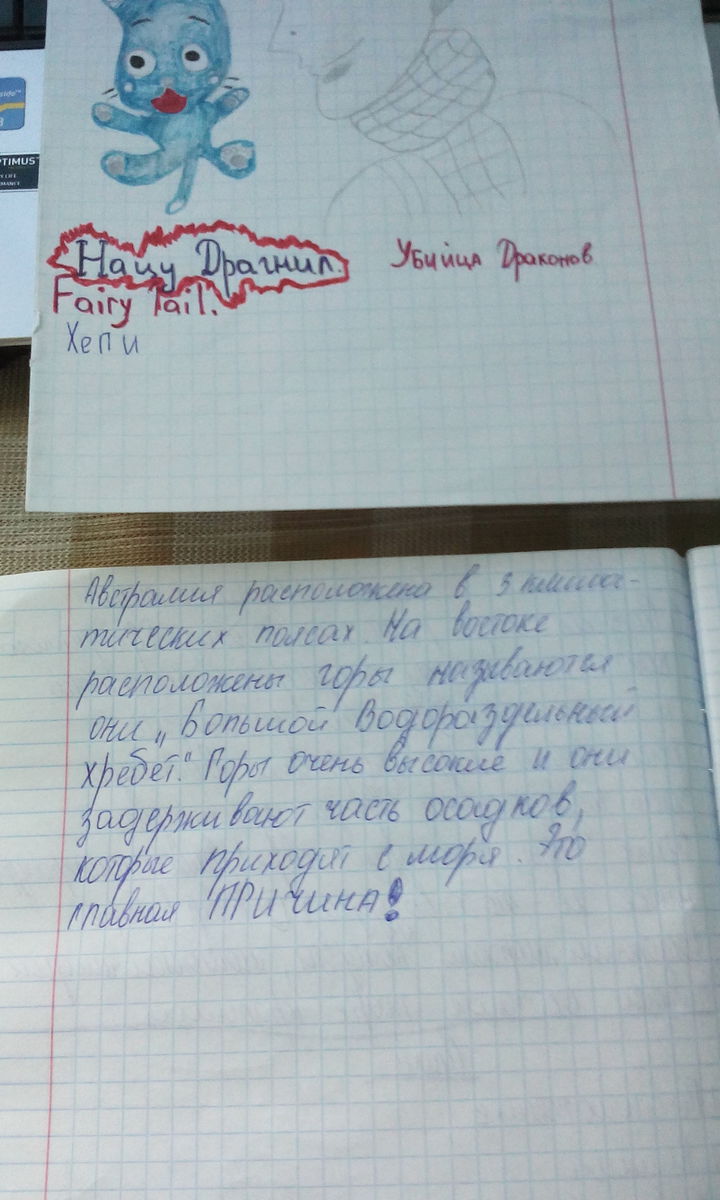 Нацу Драгнил.
Убийца Драконов
Fairy Tail.
Хепи
Австралия расположена в 3 климa-
тических поясах. На востоке
расположены горы называются
они „Большой Водораздельный
хребет." Горы очень высокие и они
задерживают часть осадков,
которые приходят с моря. Это
главная ПРИЧИНА!